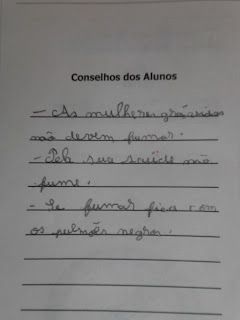 Conselhos dos Alunos
- As mulheres grávidas
não devem fumar.
- Pela sua saúde não
fume.
- Se fumar fica com
os pulmões negros.